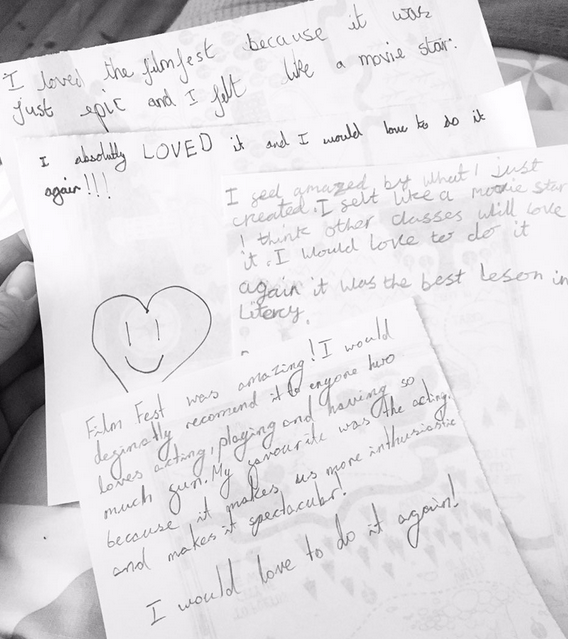 I loved the filmfest because it was
just epic and I felt like a movie star.
I absolutly LOVED it and I would love to do it
again!!!
I seel amazed by what I just
created. I selt like a movie star
I think other classes will love
it. I would love to do it
again it was the best leson in
Litercy.
Film Fest was amazing! I would
desinatly recomend it to enyone hwo
loves acting, playing and having so
much sun. My savourite was the acting.
because it makes us more inthusiastic
and makes it spectacular!
I would love to do it again!